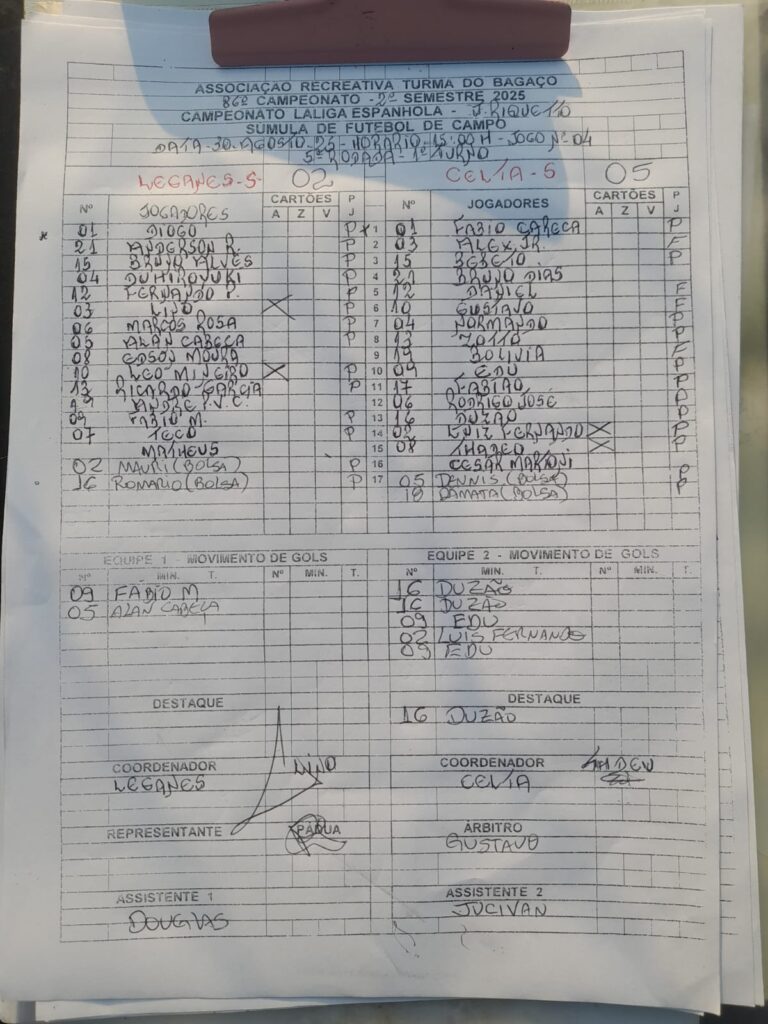 ASSOCIAÇÃO RECREATIVA TURMA DO BAGAÇO
86º CAMPEONATO - 2º SEMESTRE 2025
CAMPEONATO LALIGA ESPANHOLA - J. RIQUETTO
SÚMULA DE FUTEBOL DE CAMPO
DATA - 30. AGOSTO. 25 - HORÁRIO - 15:00 H - JOGO Nº 04
5ª RODADA - 1º TURNO
LEGANES - S 02 CELTA - S 05
Nº JOGADORES CARTÕES A Z V P J Nº JOGADORES CARTÕES A Z V P J
01 DIOGO P 1 01 FABIO CARECA P
21 ANDERSON R. P 2 03 ALEX JR. F
15 BRUNO ALVES P 3 15 BEBETO P
04 DUHIROYUKI P 4 21 BRUNO DIAS
12 FERNANDO P. P 5 12 DANIEL F
03 LINO X P 6 10 GUSTAVO F
06 MARCOS ROSA P 7 04 NORMANDO P
05 ALAN CABEÇA P 8 13 P
08 EDSON MOURA 9 19 BOLIVIA F
10 LEO MINEIRO X P 10 09 EDU P
13 RICARDO GARCIA P 11 17 FABIÃO P
ANDRE P.V.C. 12 06 RODRIGO JOSÉ P
09 FABIO M. P 13 16 DUZÃO P
07 TECO P 14 02 LUIZ FERNANDO X P
MATHEUS 15 08 X P
02 MAURI (BOLSA) P 16 CESAR MARTONI
16 ROMARIO (BOLSA) P 17 05 DENNIS (BOLSA) P
18 DAMATA (BOLSA) P
EQUIPE 1 - MOVIMENTO DE GOLS EQUIPE 2 - MOVIMENTO DE GOLS
Nº MIN. T. Nº MIN. T. Nº MIN. T. Nº MIN. T.
09 FÁBIO M 16 DUZÃO
05 ALAN CABEÇA 16 DUZÃO
09 EDU
02 LUIS FERNANDO
09 EDU
DESTAQUE DESTAQUE
16 DUZÃO
COORDENADOR LINO COORDENADOR
LEGANES CELTA
REPRESENTANTE PÁDUA ÁRBITRO
GUSTAVO
ASSISTENTE 1 ASSISTENTE 2
DOUGLAS JUCIVAN